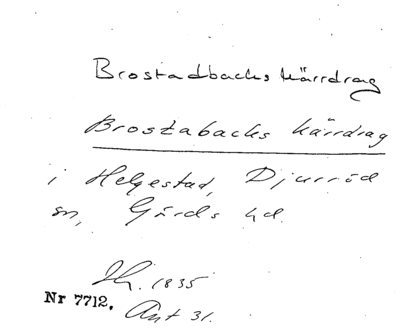 Brostadbacks kärrdrag
Brostabacks kärrdrag
i Helgestad, Djurröd
sn, Gärds hd.
Sk. 1835
Nr 7712. Akt 31.